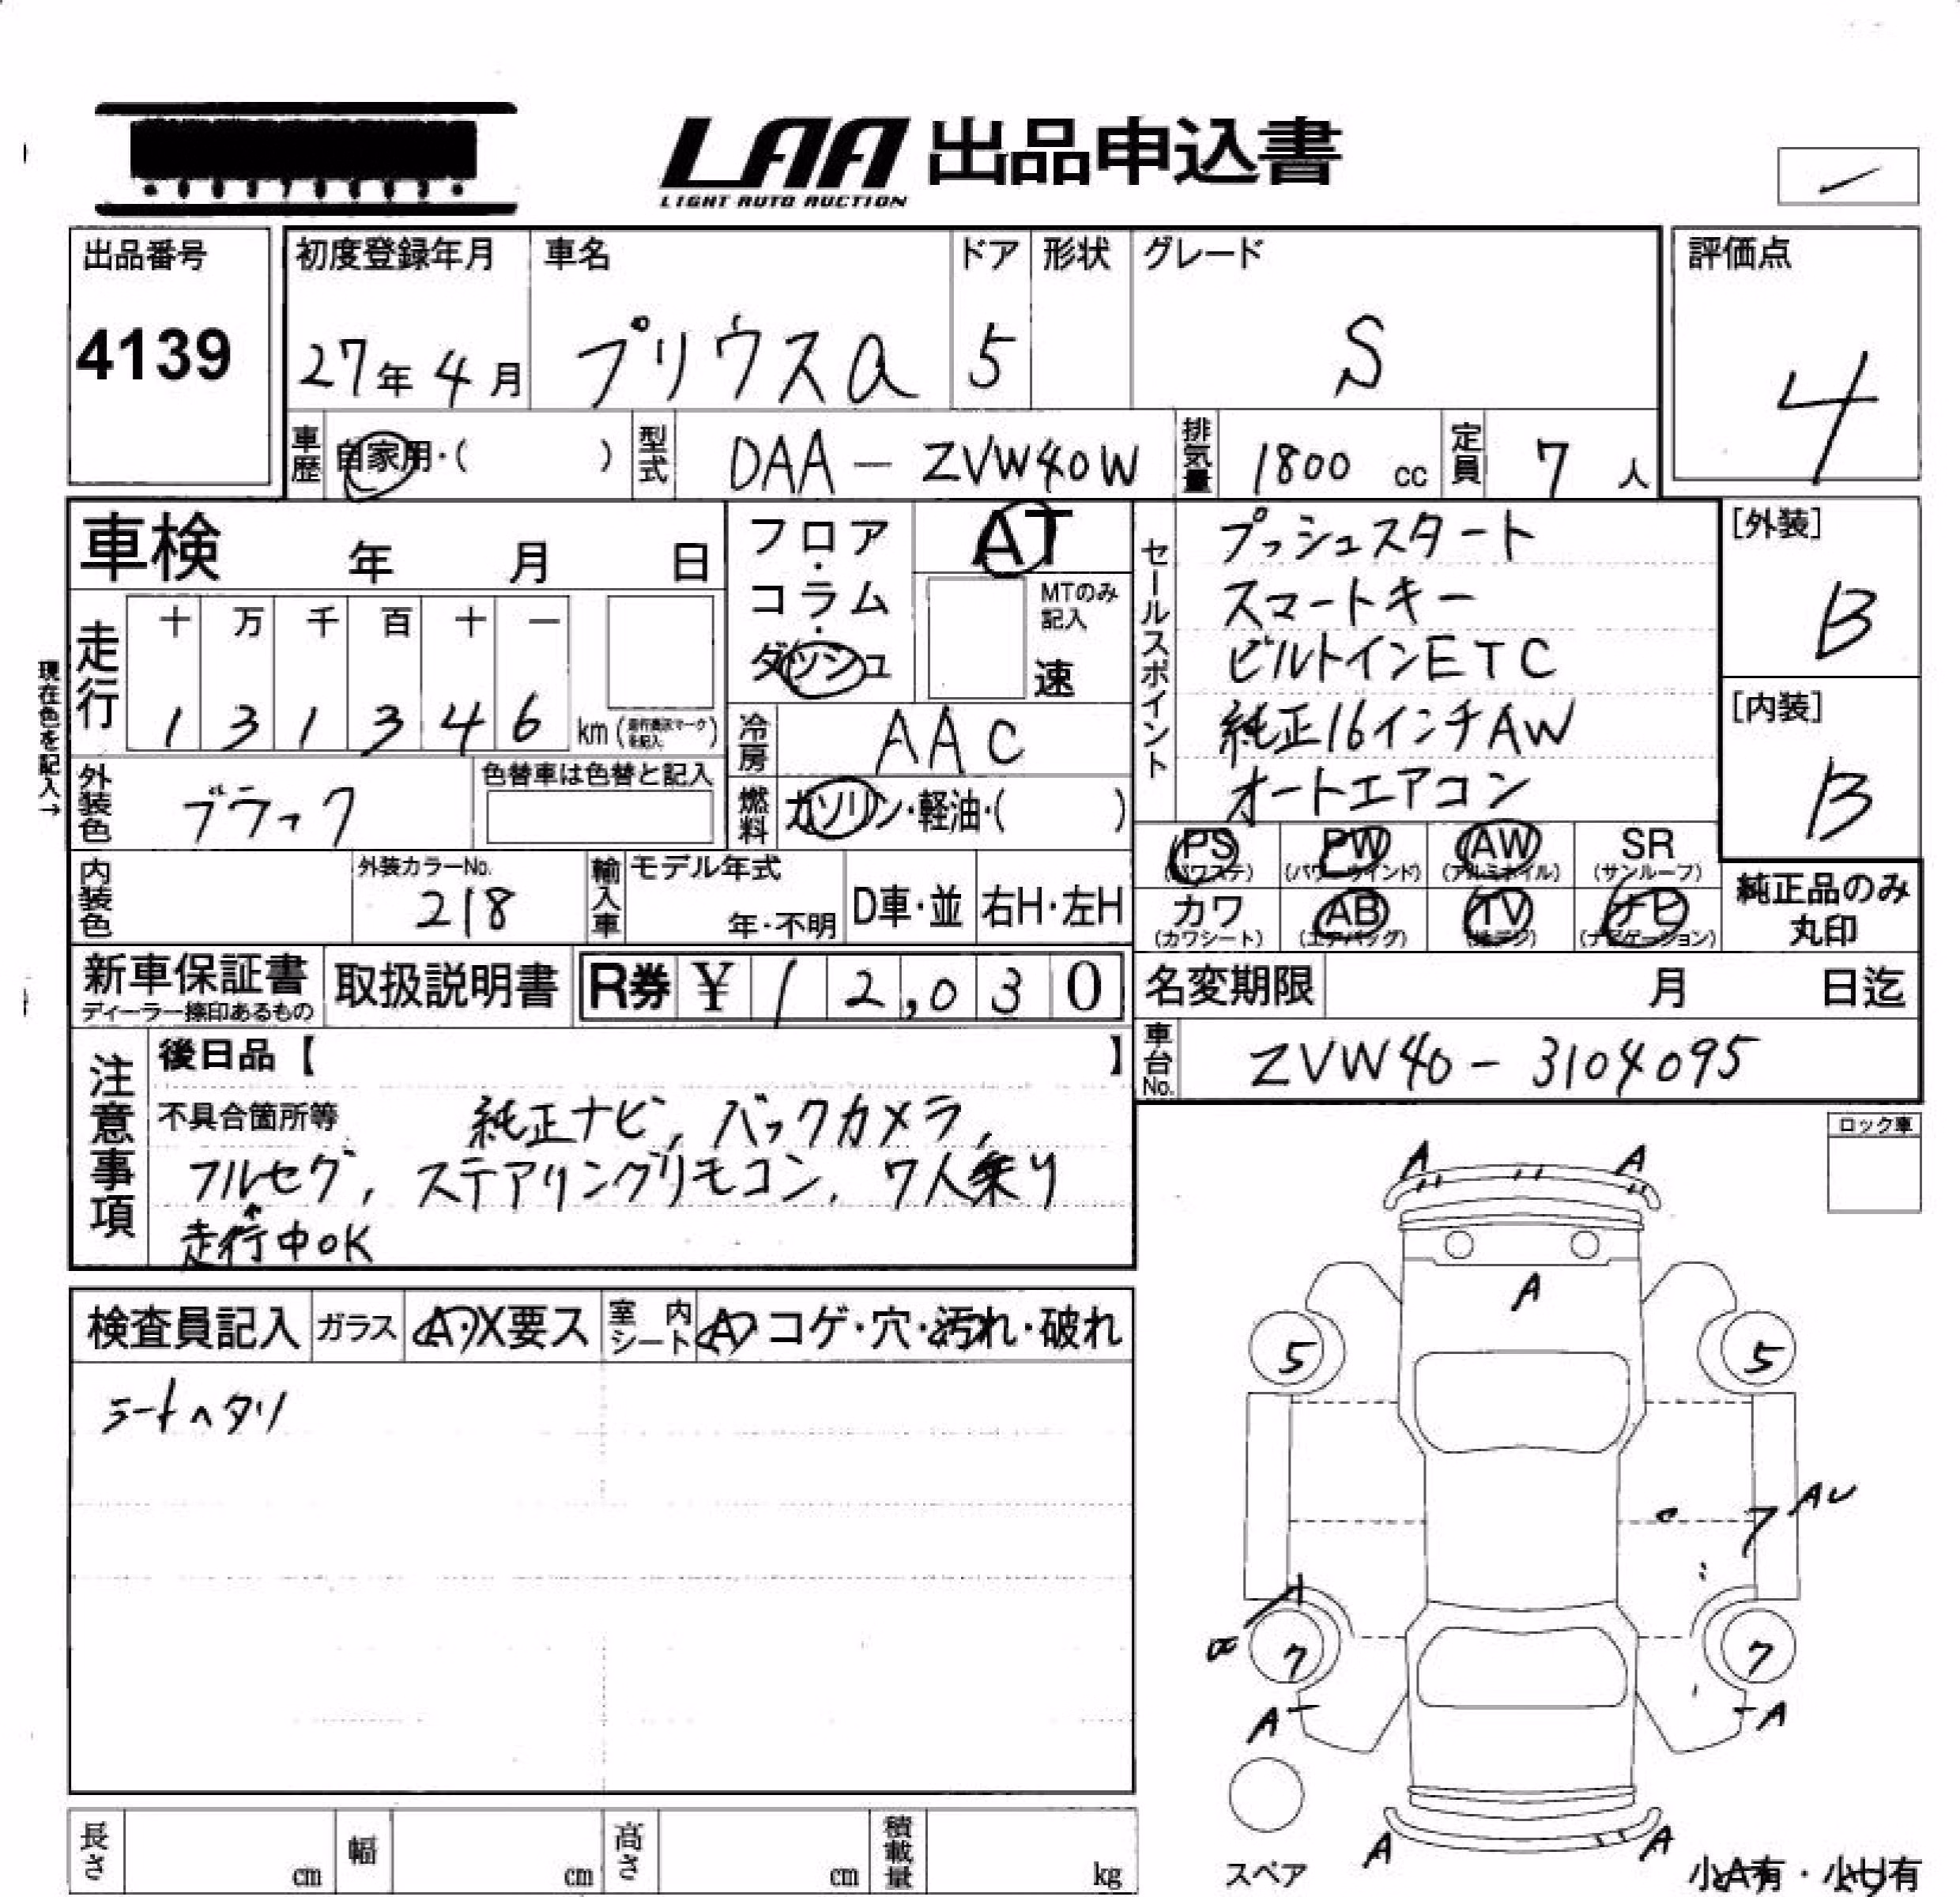 LAA 出品申込書
LIGHT AUTO AUCTION
出品番号
4139
初度登録年月
27年 4月
車名
プリウスα
ドア
5
形状
グレード
S
評価点
4
車歴
自家用・( )
型式
DAA - ZVW40W
排気量
1800 cc
定員
7 人
車検 年 月 日
フロア・コラム・ダッシュ
AT
MTのみ記入
速
走行
十 万 千 百 十 一
1 3 1 3 4 6 km (
)
現在色を記入→
外装色
ブラック
色替車は色替と記入
冷房
AAC
燃料
ガソリン・軽油・( )
内装色
外装カラーNo.
218
輸入車
モデル年式
年・不明
D車・並
右H・左H
セールスポイント
プッシュスタート
スマートキー
ビルトインETC
純正16インチAW
オートエアコン
[外装]
B
[内装]
B
PS (パワステ)
PW (パワーウインド)
AW (アルミホイル)
SR (サンルーフ)
カワ (カワシート)
AB (エアバッグ)
TV
ナビ (ナビゲーション)
純正品のみ
丸印
新車保証書
ディーラー捺印あるもの
取扱説明書
R券 ¥ 1 2,0 3 0
名変期限 月 日迄
車台No.
ZVW40 - 3104095
注意事項
後日品【 】
不具合箇所等 純正ナビ, バックカメラ,
フルセグ, ステアリングリモコン, 7人乗り
走行中OK
ロック車
検査員記入
ガラス
A・X要ス
室内シート
A・コゲ・穴・汚れ・破れ
シートヘタリ
A A
A
5 5
AU
7 7
A A
A A
スペア
小A有・小U有
長さ cm
幅 cm
高さ cm
積載量 kg